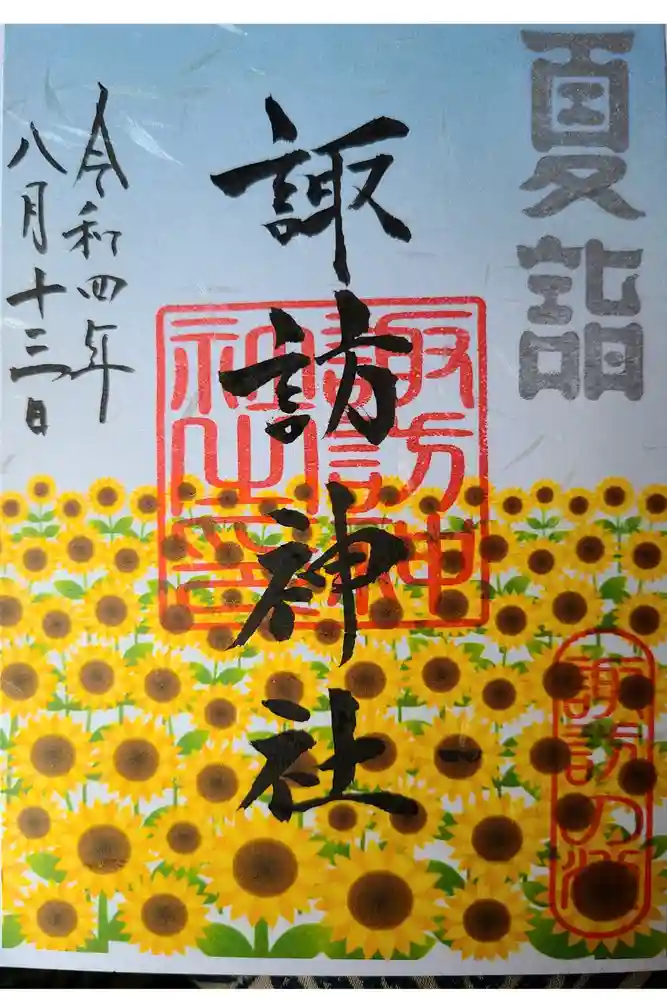 夏詣
諏訪神社
諏訪神
社之印
令和四年
八月十三日